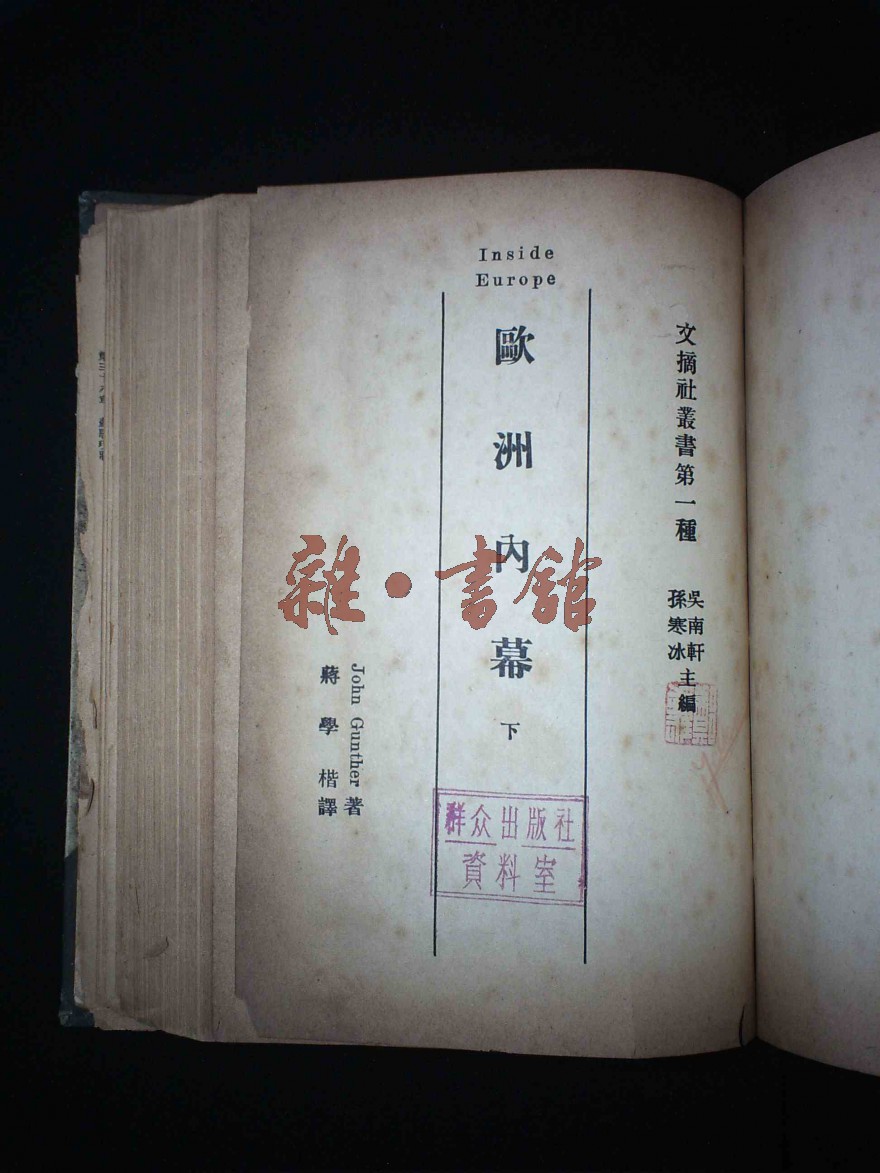 Inside
Europe
文摘社叢書第一種
吳南軒
孫寒冰
主編
歐洲內幕
下
John Gunther 著
蔣學楷譯
群众出版社
資料室
雜·書館